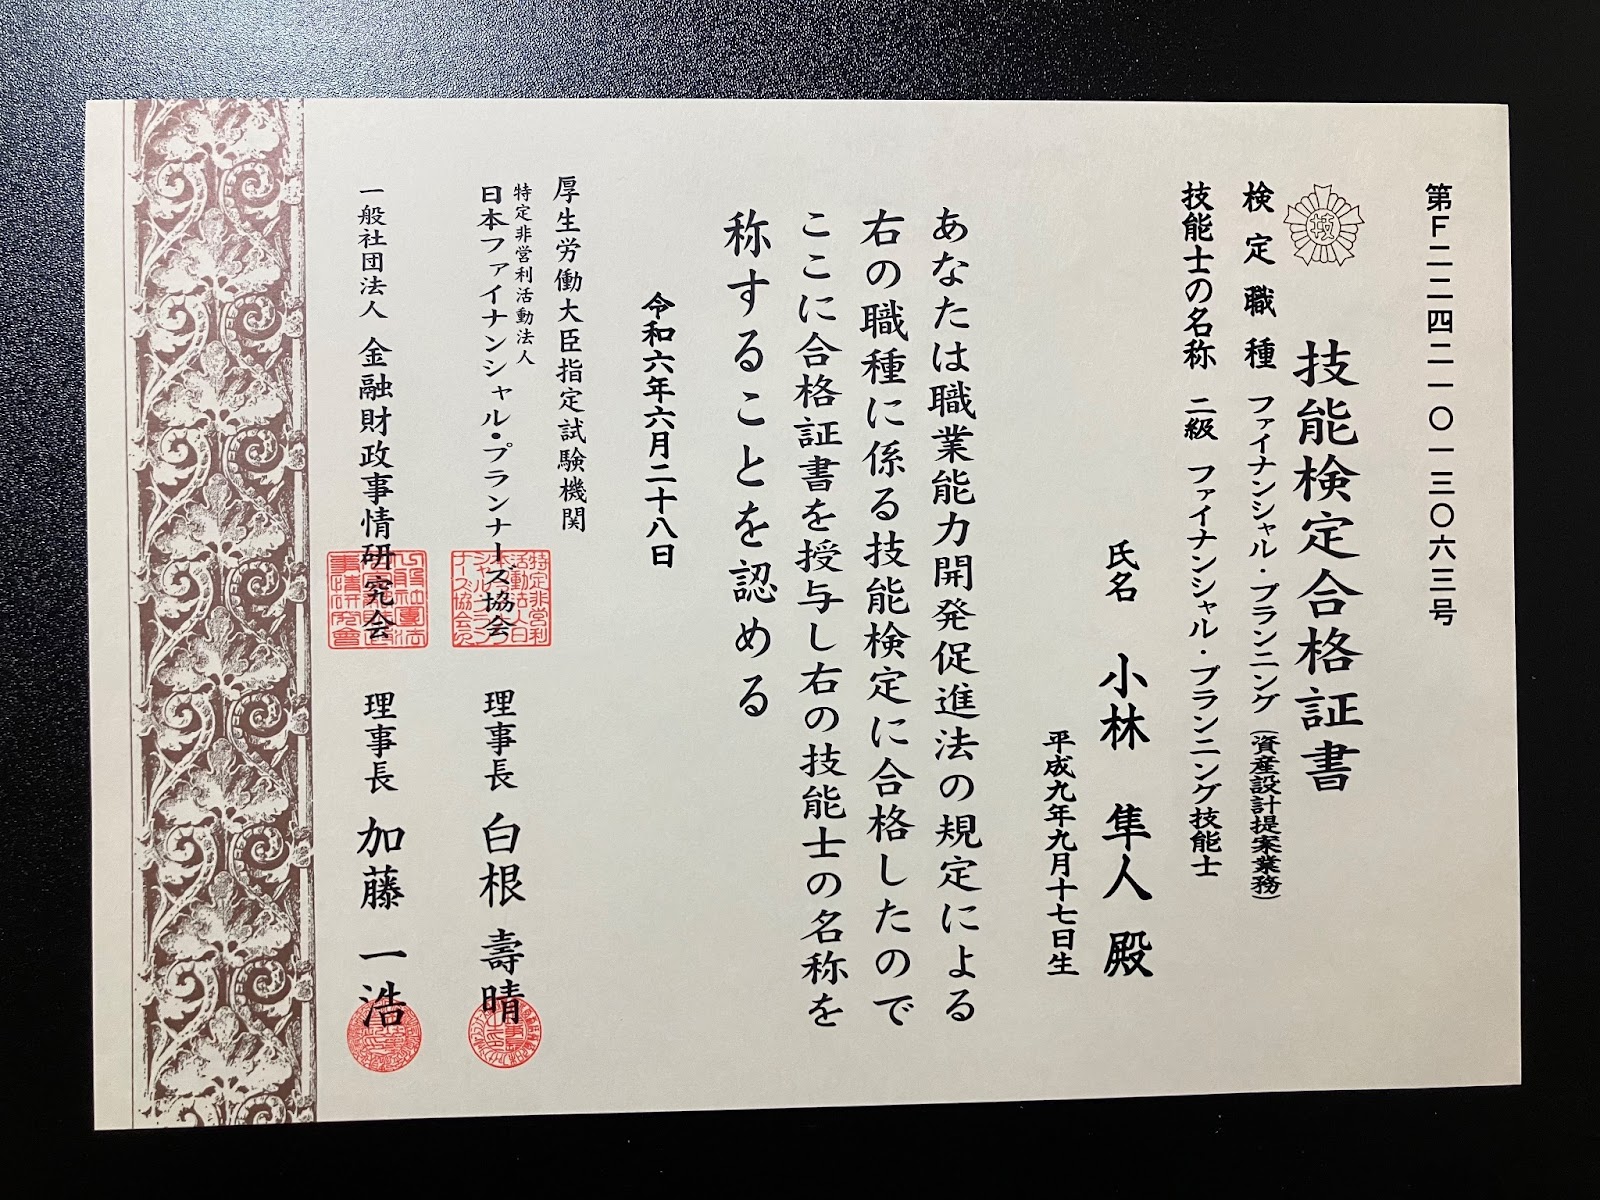 第F二二四二一〇一三〇六三号
技
技能検定合格証書
検定職種 ファイナンシャル・プランニング(資産設計提案業務)
技能士の名称 二級 ファイナンシャル・プランニング技能士
氏名 小林 隼人 殿
平成九年九月十七日生
あなたは職業能力開発促進法の規定による
右の職種に係る技能検定に合格したので
ここに合格証書を授与し右の技能士の名称を
称することを認める
令和六年六月二十八日
厚生労働大臣指定試験機関
特定非営利活動法人
日本ファイナンシャル・プランナーズ協会 理事長 白根 壽晴
一般社団法人 金融財政事情研究会 理事長 加藤 一浩